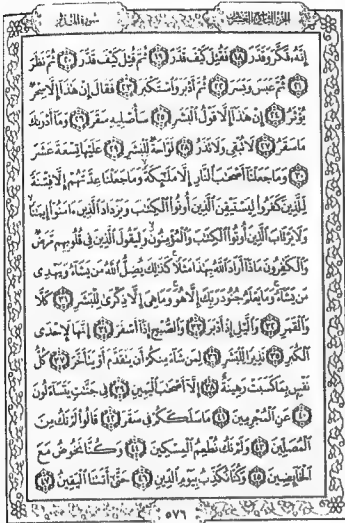 سُورَةُ المدَّثِّر الجزء التاسع والعشرون
إِنَّهُۥ فَكَّرَ وَقَدَّرَ ﴿١٨﴾ فَقُتِلَ كَيْفَ قَدَّرَ ﴿١٩﴾ ثُمَّ قُتِلَ كَيْفَ قَدَّرَ ﴿٢٠﴾ ثُمَّ نَظَرَ
﴿٢١﴾ ثُمَّ عَبَسَ وَبَسَرَ ﴿٢٢﴾ ثُمَّ أَدْبَرَ وَٱسْتَكْبَرَ ﴿٢٣﴾ فَقَالَ إِنْ هَٰذَآ إِلَّا سِحْرٌ
يُؤْثَرُ ﴿٢٤﴾ إِنْ هَٰذَآ إِلَّا قَوْلُ ٱلْبَشَرِ ﴿٢٥﴾ سَأُصْلِيهِ سَقَرَ ﴿٢٦﴾ وَمَآ أَدْرَىٰكَ
مَا سَقَرُ ﴿٢٧﴾ لَا تُبْقِى وَلَا تَذَرُ ﴿٢٨﴾ لَوَّاحَةٌ لِّلْبَشَرِ ﴿٢٩﴾ عَلَيْهَا تِسْعَةَ عَشَرَ
﴿٣٠﴾ وَمَا جَعَلْنَآ أَصْحَٰبَ ٱلنَّارِ إِلَّا مَلَٰٓئِكَةً وَمَا جَعَلْنَا عِدَّتَهُمْ إِلَّا فِتْنَةً
لِّلَّذِينَ كَفَرُوا۟ لِيَسْتَيْقِنَ ٱلَّذِينَ أُوتُوا۟ ٱلْكِتَٰبَ وَيَزْدَادَ ٱلَّذِينَ ءَامَنُوٓا۟ إِيمَٰنًا
وَلَا يَرْتَابَ ٱلَّذِينَ أُوتُوا۟ ٱلْكِتَٰبَ وَٱلْمُؤْمِنُونَ وَلِيَقُولَ ٱلَّذِينَ فِى قُلُوبِهِم مَّرَضٌ
وَٱلْكَٰفِرُونَ مَاذَآ أَرَادَ ٱللَّهُ بِهَٰذَا مَثَلًا كَذَٰلِكَ يُضِلُّ ٱللَّهُ مَن يَشَآءُ وَيَهْدِى
مَن يَشَآءُ وَمَا يَعْلَمُ جُنُودَ رَبِّكَ إِلَّا هُوَ وَمَا هِىَ إِلَّا ذِكْرَىٰ لِلْبَشَرِ ﴿٣١﴾ كَلَّا
وَٱلْقَمَرِ ﴿٣٢﴾ وَٱلَّيْلِ إِذْ أَدْبَرَ ﴿٣٣﴾ وَٱلصُّبْحِ إِذَآ أَسْفَرَ ﴿٣٤﴾ إِنَّهَا لَإِحْدَى
ٱلْكُبَرِ ﴿٣٥﴾ نَذِيرًا لِّلْبَشَرِ ﴿٣٦﴾ لِمَن شَآءَ مِنكُمْ أَن يَتَقَدَّمَ أَوْ يَتَأَخَّرَ ﴿٣٧﴾ كُلُّ
نَفْسٍۭ بِمَا كَسَبَتْ رَهِينَةٌ ﴿٣٨﴾ إِلَّآ أَصْحَٰبَ ٱلْيَمِينِ ﴿٣٩﴾ فِى جَنَّٰتٍ يَتَسَآءَلُونَ
﴿٤٠﴾ عَنِ ٱلْمُجْرِمِينَ ﴿٤١﴾ مَا سَلَكَكُمْ فِى سَقَرَ ﴿٤٢﴾ قَالُوا۟ لَمْ نَكُ مِنَ
ٱلْمُصَلِّينَ ﴿٤٣﴾ وَلَمْ نَكُ نُطْعِمُ ٱلْمِسْكِينَ ﴿٤٤﴾ وَكُنَّا نَخُوضُ مَعَ
ٱلْخَآئِضِينَ ﴿٤٥﴾ وَكُنَّا نُكَذِّبُ بِيَوْمِ ٱلدِّينِ ﴿٤٦﴾ حَتَّىٰٓ أَتَىٰنَا ٱلْيَقِينُ ﴿٤٧﴾
٥٧٦